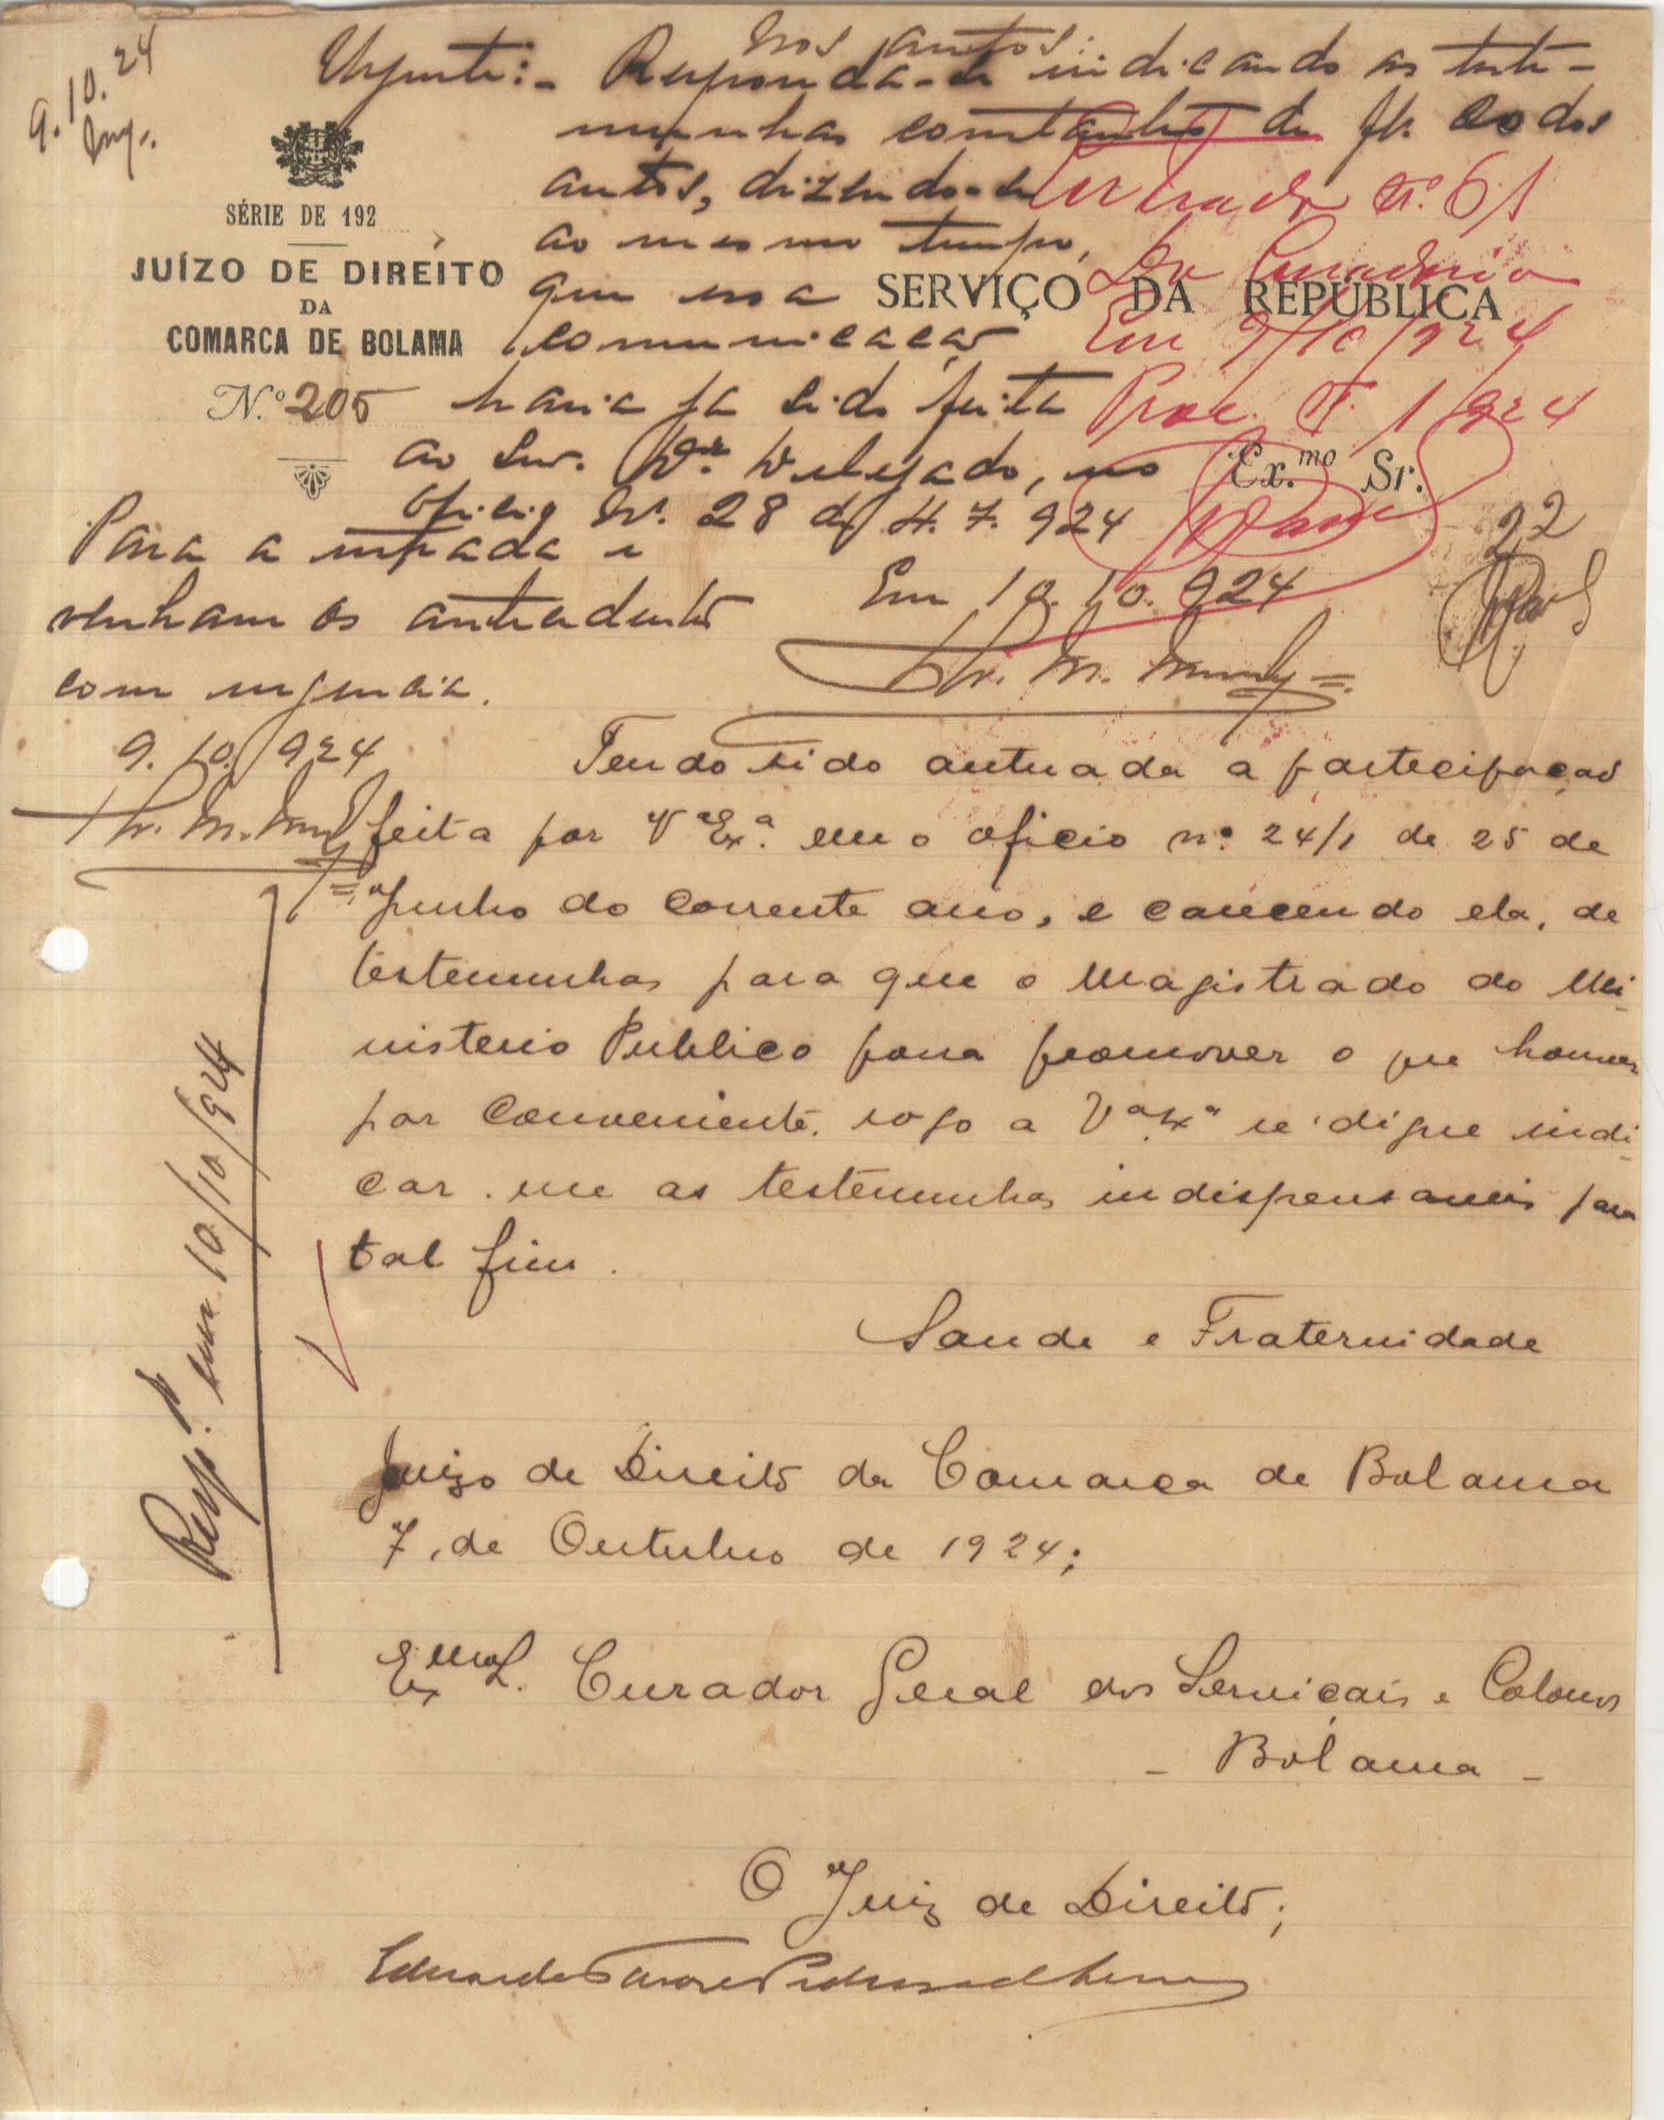 9.10.24
Urgente:- Responda-se nos autos: indicando as teste-
munhas constantes de fls. dos
autos, dizendo-se
ao mesmo tempo,
que essa
comunicação
havia já sido feita
ao Snr. Dr. Delegado, no
oficio Nº. 28 de 4.7.924
Em 10.10.924
Entrada nº. 61
Da Curadoria
Em 9/10/924
Proc. 1/924
22
SÉRIE DE 192
JUÍZO DE DIREITO
DA
COMARCA DE BOLAMA
N.º 205
SERVIÇO DA REPÚBLICA
Ex.mo Sr.
Para a entrada e
venham os antecedentes
com urgencia.
9.10.924
Tendo sido autuada a partecipação
feita por Vª Exª. em o oficio nº 24/1 de 25 de
Junho do corrente ano, e carecendo ela, de
testemunhas para que o Magistrado do Mi-
nisterio Publico possa promover o que houver
por conveniente, rogo a Vª Exª se digne indi-
car-me as testemunhas indispensaveis para
tal fim.
Saude e Fraternidade
Resp.do em 10/10/924
Juizo de Direito da Comarca de Bolama
7, de Outubro de 1924;
Exmo S. Curador Geral dos Serviçais e Colonos
- Bolama -
O Juiz de Direito;
Eduardo Tavares